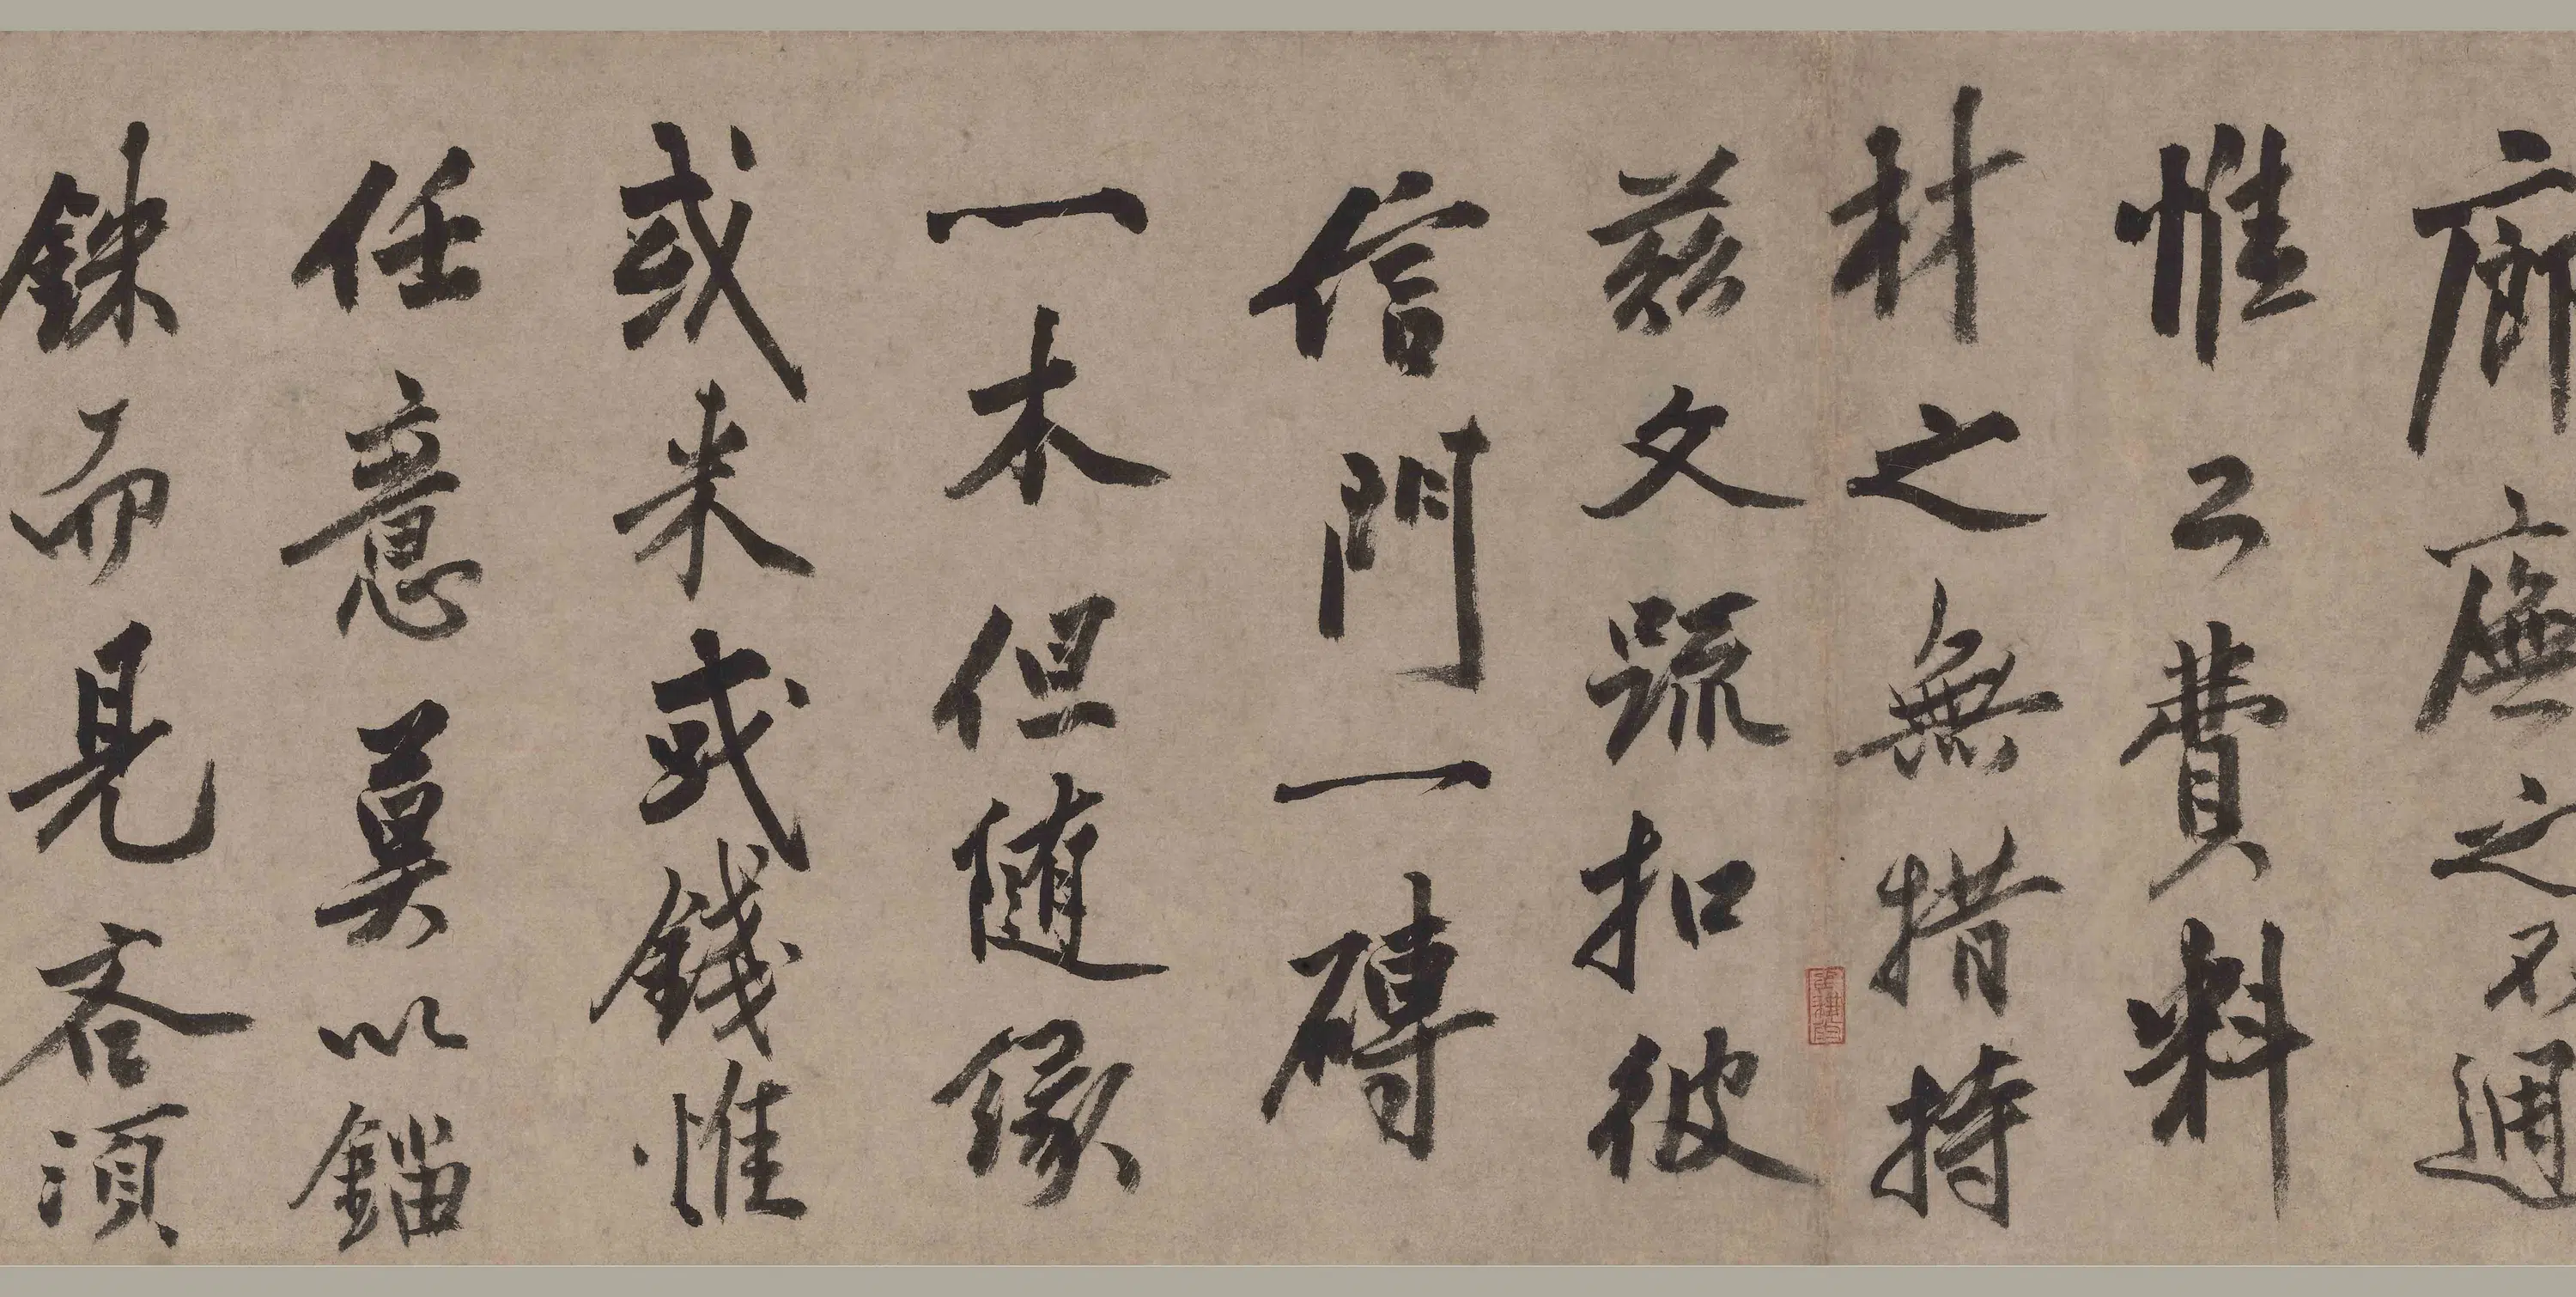 廊廡之不週
惟工費料
材之無措持
茲文疏扣彼
信門一磚
一木但隨緣
或米或錢惟
任意莫以錙
銖而見吝須